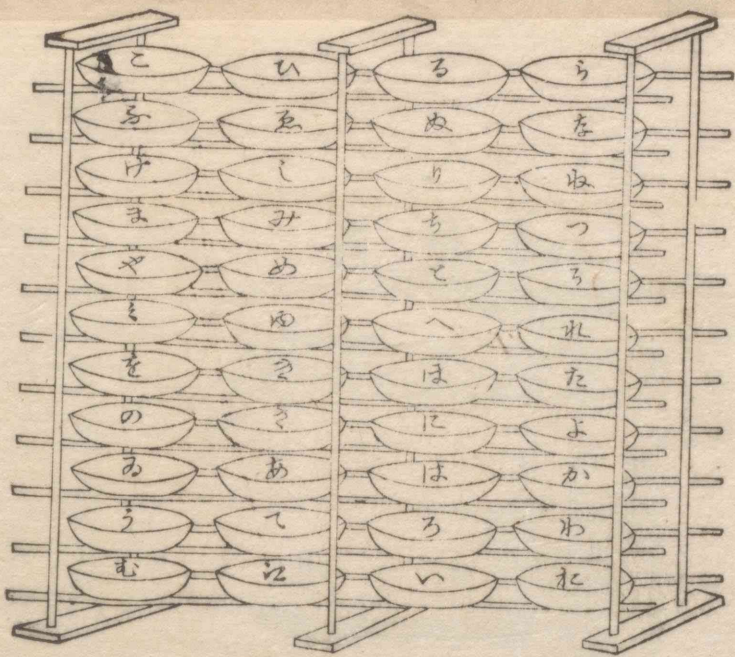 こ ひ る ら
ふ ゑ ぬ な
け し り ね
ま み ち つ
や め と そ
く ゆ へ れ
を き ほ た
の さ に よ
ゐ あ は か
う て ろ わ
む 江 い を